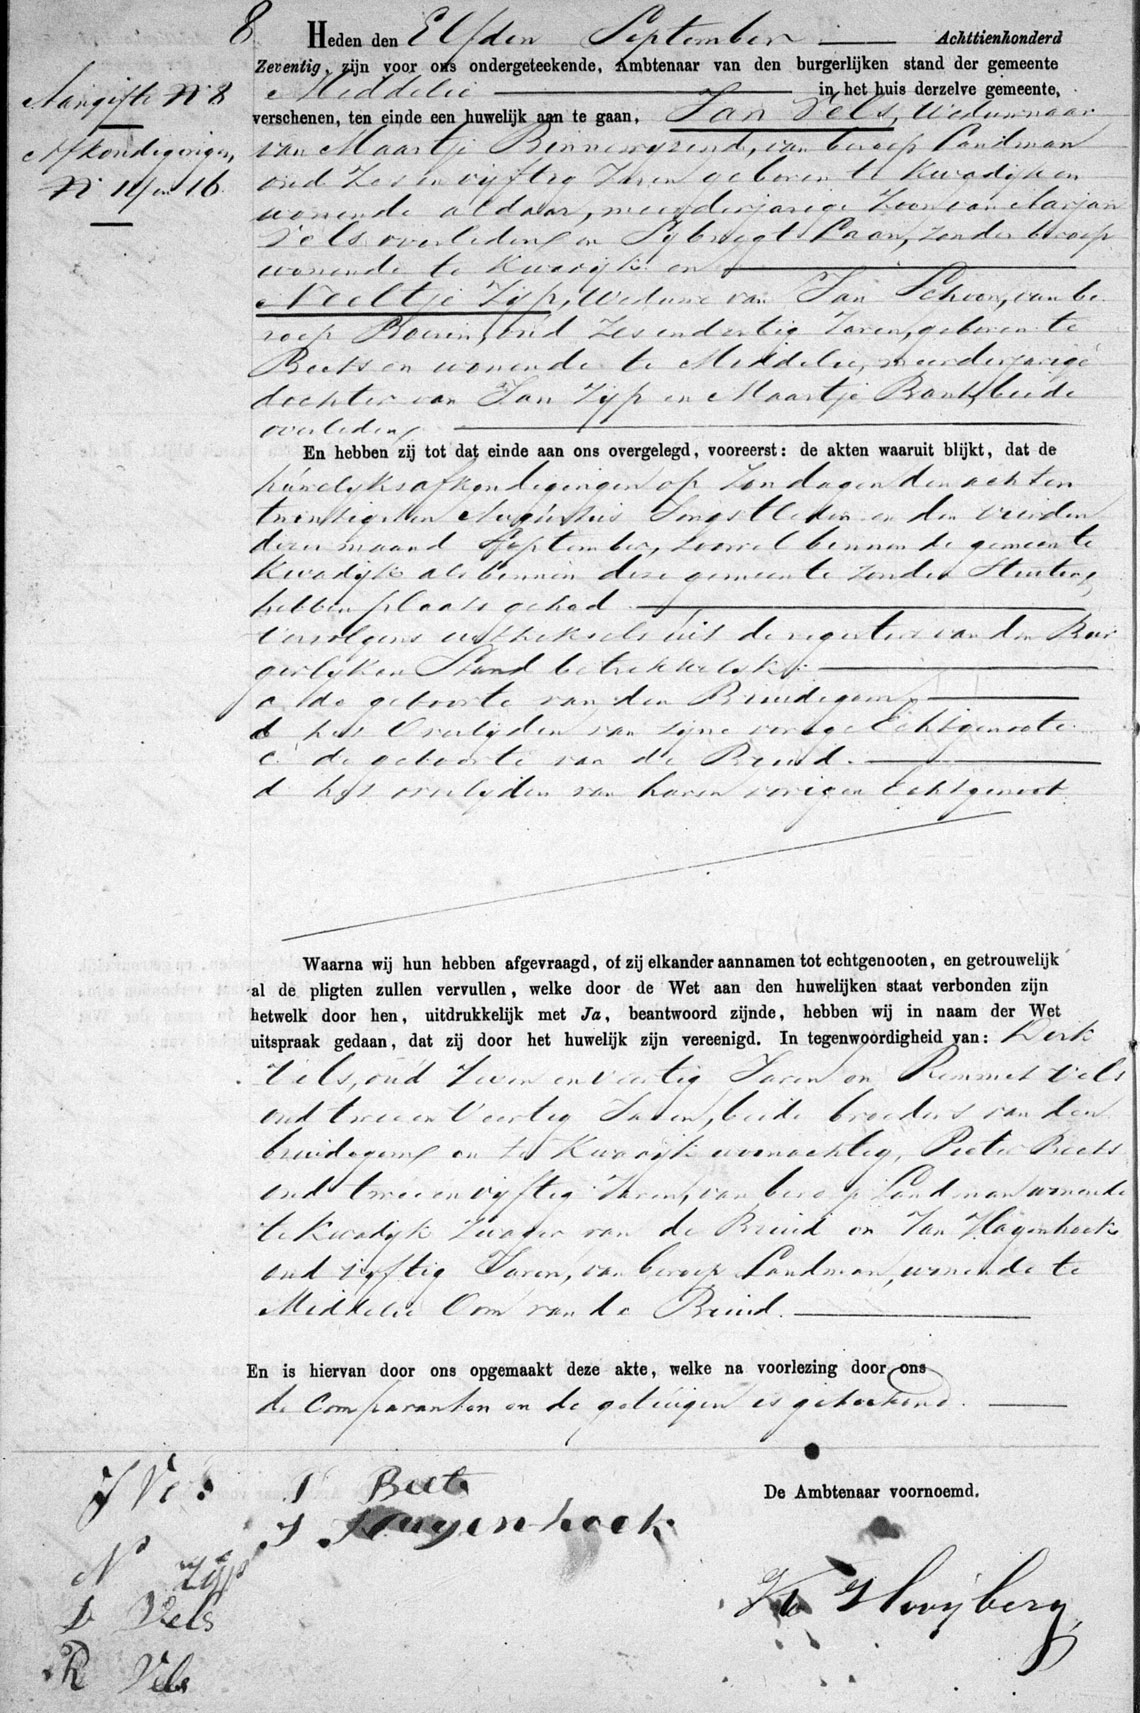 8
Heden den Elfden September Achttienhonderd
Zeventig, zijn voor ons ondergeteekende, Ambtenaar van den burgerlijken stand der gemeente
Middelie in het huis derzelve gemeente,
verschenen, ten einde een huwelijk aan te gaan, Jan Vels, Weduwnaar
Aangifte N 8
Afkondigingen
N 11 en 16
van Maartje Binnewijzend, van beroep Landman
oud Zes en vijftig Jaren geboren te Kwadijk en
wonende aldaar, meerderjarige Zoon van Aarjan
Vels overleden en Sijbregt Laan, zonder beroep
wonende te Kwadijk en
Neeltje Zijp, Weduwe van Jan Schoon, van be
roep Boerin, oud Zes en dertig Jaren, geboren te
Beets en wonende te Middelie, meerderjarige
dochter van Jan Zijp en Maartje Bonk, beide
overleden
En hebben zij tot dat einde aan ons overgelegd, vooreerst: de akten waaruit blijkt, dat de
huwelijksafkondigingen op Zondagen den achten
twintigsten Augustus Jongstleden en den vierden
dezer maand September, zoowel binnen de gemeente
Kwadijk als binnen deze gemeente zonder Stuiting
hebben plaats gehad
Vervolgens uittreksels uit de registers van den Bur
gerlijken Stand betrekkelijk:
a de geboorte van den Bruidegom,
b het Overlijden van zijne vorige Echtgenoote
c de geboorte van de Bruid.
d het overlijden van haren vorigen Echtgenoot
Waarna wij hun hebben afgevraagd, of zij elkander aannamen tot echtgenooten, en getrouwelijk
al de pligten zullen vervullen, welke door de Wet aan den huwelijken staat verbonden zijn
hetwelk door hen, uitdrukkelijk met Ja, beantwoord zijnde, hebben wij in naam der Wet
uitspraak gedaan, dat zij door het huwelijk zijn vereenigd. In tegenwoordigheid van: Dirk
Vels, oud Zeven en veertig Jaren en Remmet Vels
oud twee en Veertig Jaren, beide broeders van den
bruidegom en te Kwadijk woonachtig, Pieter Beets
oud twee en vijftig Jaren, van beroep Landman wonende
te Kwadijk Zwager van de Bruid en Jan Hagenhoek
oud vijftig Jaren, van beroep Landman, wonende te
Middelie Oom van de Bruid.
En is hiervan door ons opgemaakt deze akte, welke na voorlezing door ons
de Comparanten en de getuigen is geteekend.
J Vels
P Beets
De Ambtenaar voornoemd.
J Hagenhoek
N Zijp
D Vels
R Vels
Hooijberg